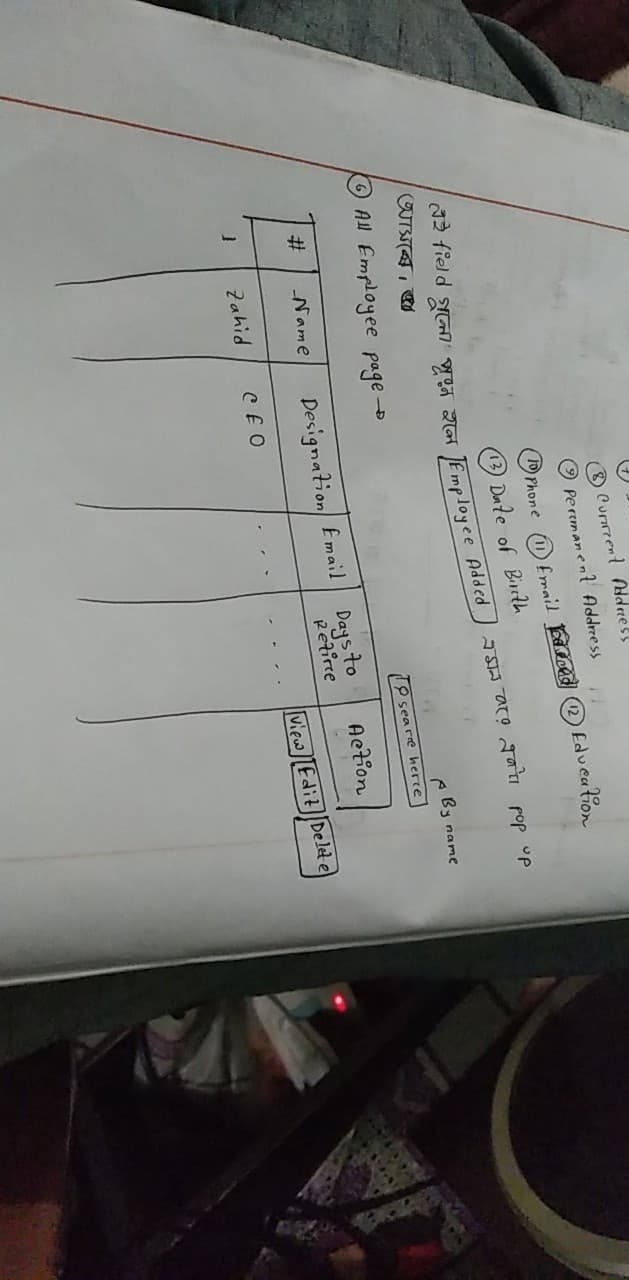 ⑧ Current Address
⑨ Permanent Address
⑩ Phone ⑪ Email ⑫ Education
⑬ Date of Birth
এই field গুলো পূরণ হলে Employee Added এমন একটা pop up
আসবে।
⑥ All Employee page →
By name
search here
# Name Designation Email Days to Retire Action
1 Zahid CEO . . . . . . . View Edit Delete